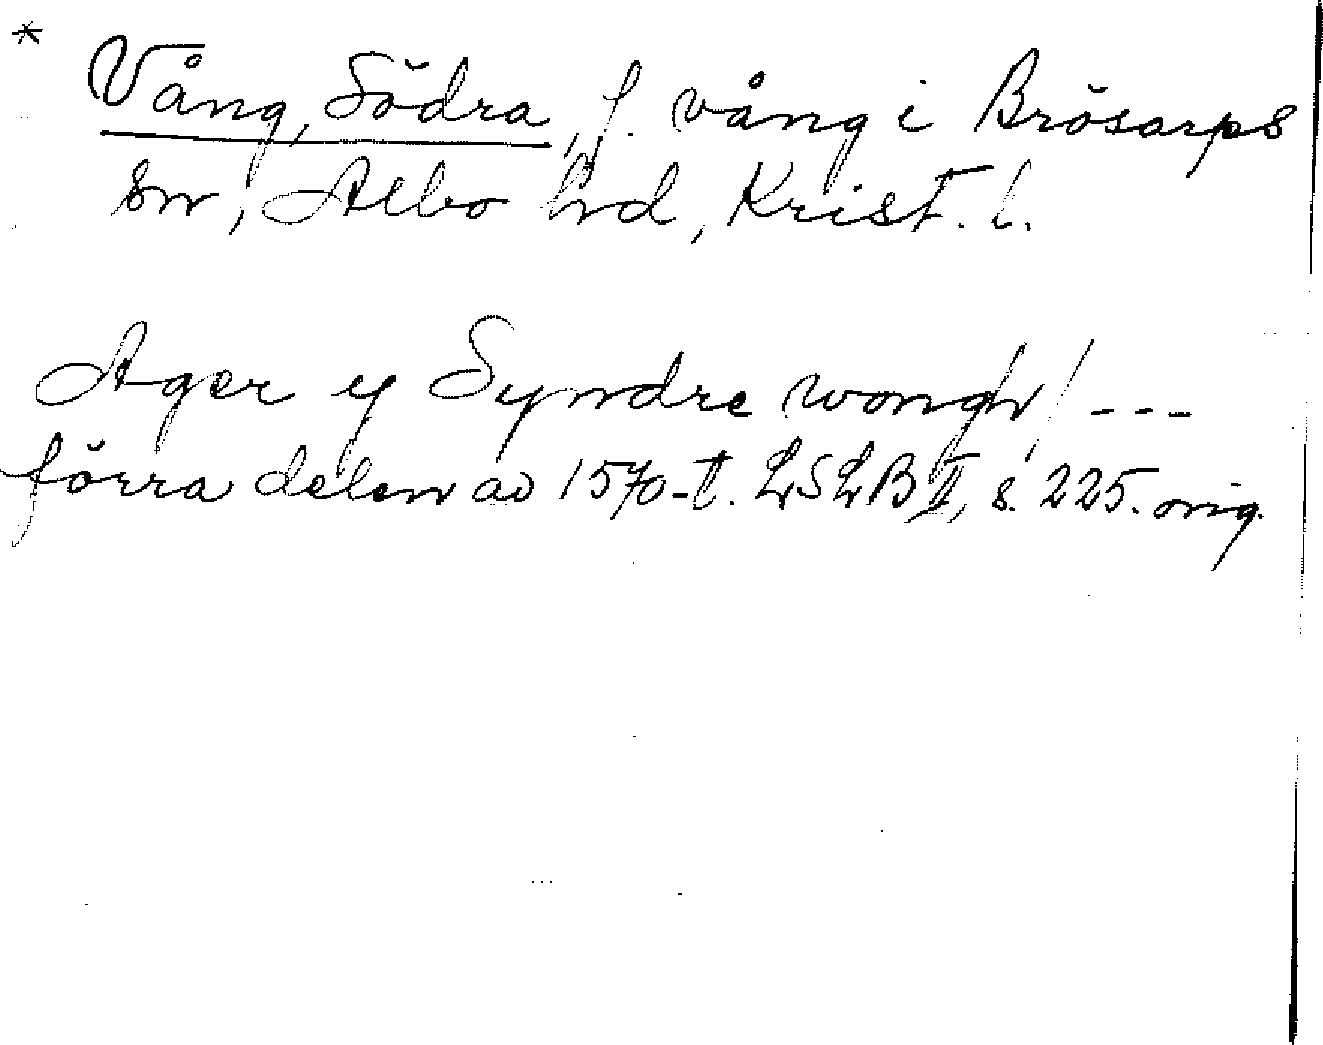 * Vång, Södra, f. vång i Brösarps
sn, Albo hd, Krist. l.
Ager y Syndre wongh / ---
förra delen av 1570-t. LSLB II, s. 225. orig.